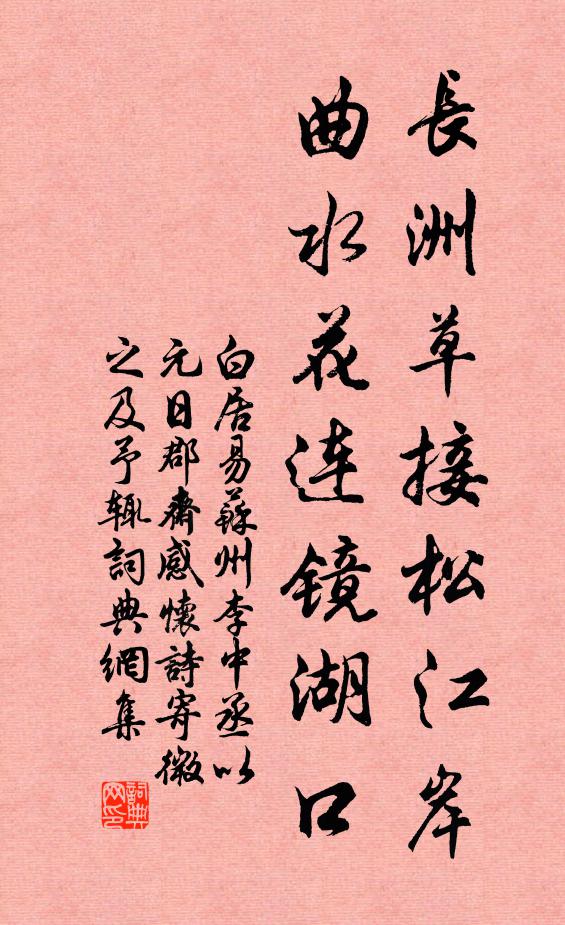 長洲草接松江岸
曲水花连镜湖口
白居易蘇州李中丞以
元日郡齋感懷詩寄微
之及予辄詞典網集
詞典网印